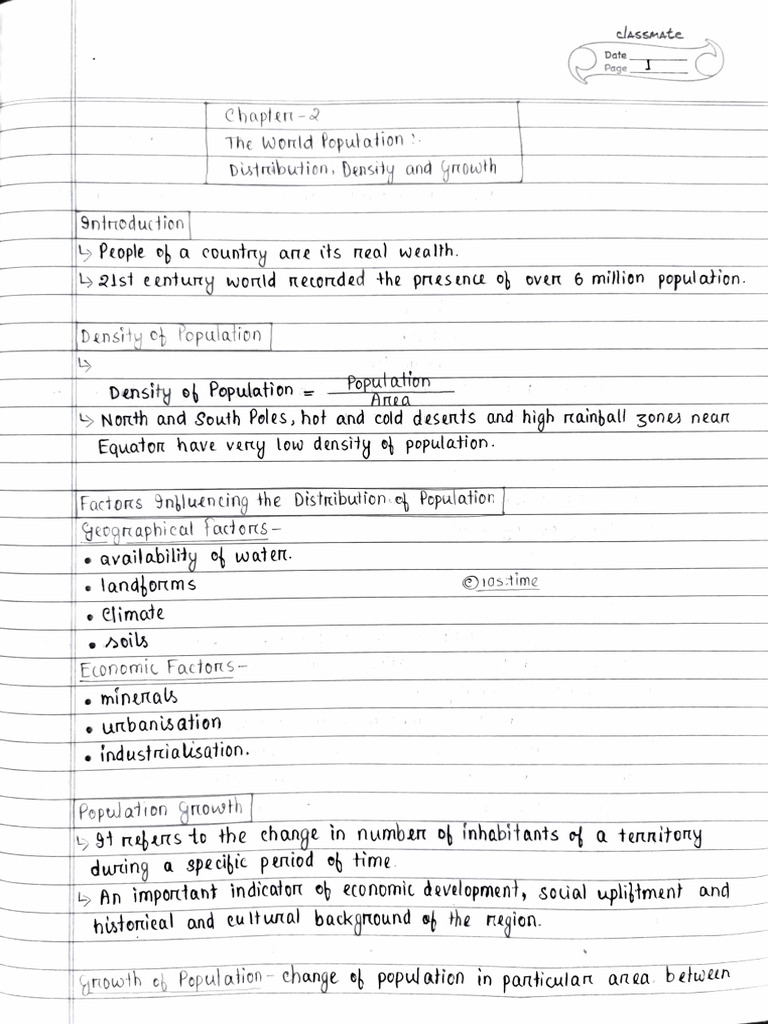 classmate
Date
Page 1
Chapter-2
The World Population:
Distribution, Density and Growth
Introduction
↳ People of a country are its real wealth.
↳ 21st century world recorded the presence of over 6 million population.
Density of Population
↳
Density of Population = Population / Area
↳ North and South Poles, hot and cold deserts and high rainfall zones near
Equator have very low density of population.
Factors Influencing the Distribution of Population
Geographical Factors-
• availability of water.
• landforms
©ias:time
• climate
• soils
Economic Factors-
• minerals
• urbanisation
• industrialisation.
Population Growth
↳ It refers to the change in number of inhabitants of a territory
during a specific period of time.
↳ An important indicator of economic development, social upliftment and
historical and cultural background of the region.
Growth of Population - change of population in particular area between